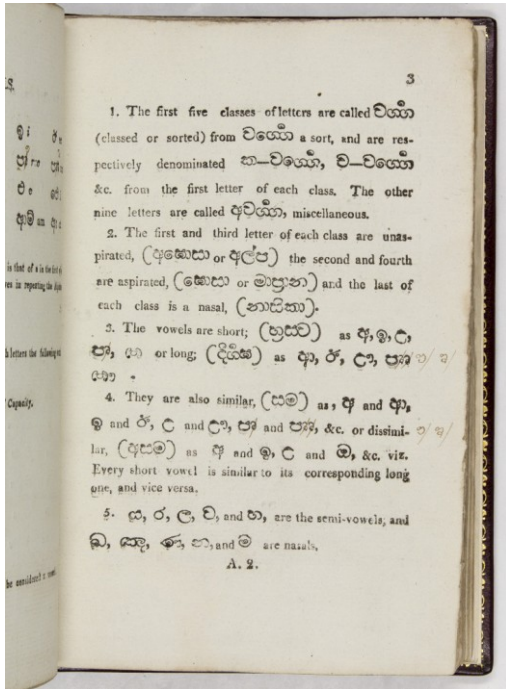 3
1. The first five classes of letters are called වර්ග්ග
(classed or sorted) from වග්ගෝ a sort, and are res-
pectively denominated ක—වග්ගෝ, ච—වග්ගෝ
&c. from the first letter of each class. The other
nine letters are called අවර්ග්ග, miscellaneous.
2. The first and third letter of each class are unas-
pirated, (අඝොසා or අල්ප) the second and fourth
are aspirated, (ඝොසා or මාප්‍රාන) and the last of
each class is a nasal, (නාසිකා).
3. The vowels are short; (හ්‍රසව) as අ, ඉ, උ,
or long; as ආ, ඊ, ඌ,
4. They are also similar, (සම) as, අ and ආ,
ඉ and ඊ, උ and ඌ, and &c. or dissimi-
lar, (අසම) as අ and ඉ, උ and ඔ, &c. viz.
Every short vowel is similar to its corresponding long
one, and vice versa.
5. ය, ර, ල, ව, and හ, are the semi-vowels, and
ඞ, ඤ, ණ, න, and ම are nasals,
A. 2.